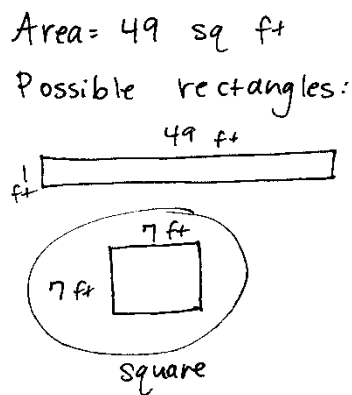 Area= 49 sq ft
Possible rectangles:
49 ft
1
ft
7 ft
7 ft
square